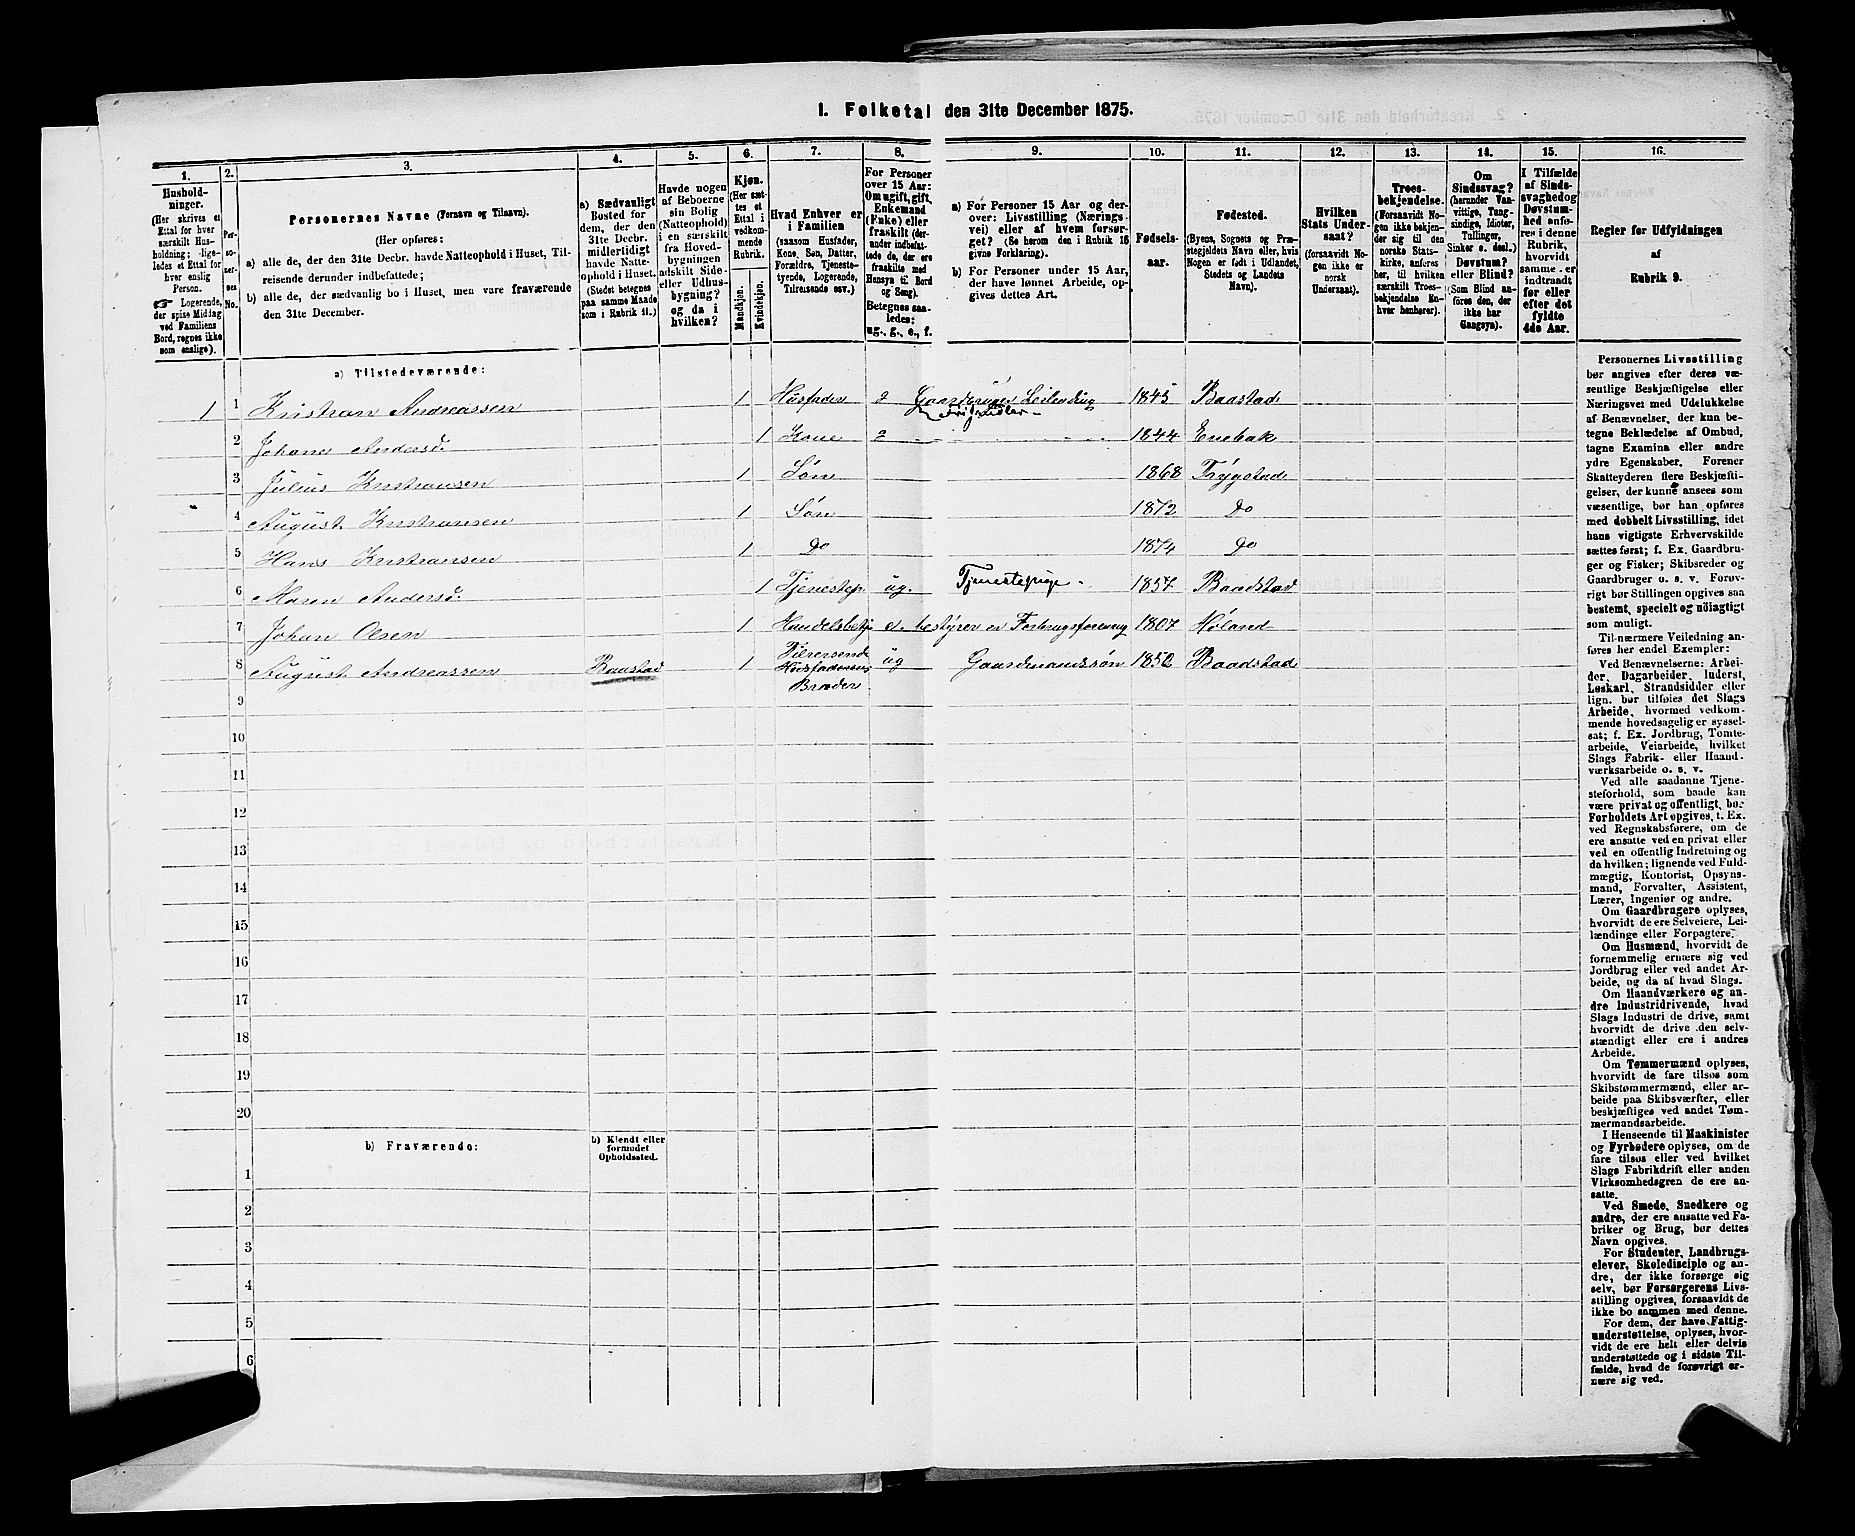 1. Folketal den 31te December 1875.
1.
2.
3.
4.
5.
6.
7.
8.
9.
10.
11.
12.
13.
14.
15.
16.
Hushold-
ninger.
(Her skrives et
Ettal for hver
særskilt Hus-
holdning; lige-
ledes et Ettal for
hver enslig
Person.
☞ Logerende,
der spise Middag
ved Familiens
Bord, regnes ikke
som enslige).
Per-
so-
ner-
nes
No.
Personernes Navne (Fornavn og Tilnavn).
(Her opføres:
a) alle de, der den 31te Decbr. havde Natteophold i Huset, Til-
reisende derunder indbefattede;
b) alle de, der sædvanlig bo i Huset, men vare fraværende
den 31te December.
a) Sædvanligt
Bosted for
dem, der den
31te Decbr.
midlertidigt
havde Natte-
ophold i Huset.
(Stedet betegnes
paa samme Maade
som i Rubrik 11.)
Havde nogen
af Beboerne
sin Bolig
(Natteophold)
i en særskilt
fra Hoved-
bygningen
adskilt Side-
eller Udhus-
bygning?
og da i
hvilken?
Kjøn.
(Her sæt-
tes et
Ettal i
vedkom-
mende
Rubrik.
Mandkjøn.
Kvindekjøn.
Hvad Enhver er
i Familien
(saasom Husfader,
Kone, Søn, Datter,
Forældre, Tjeneste-
tyende, Logerende,
Tilreisende osv.)
For Personer
over 15 Aar:
Om ugift, gift,
Enkemand
(Enke) eller
fraskilt (der-
under indbefat-
tede de, der ere
fraskilte med
Hensyn til Bord
og Seng).
Betegnes saa-
ledes:
ug., g., e., f.
a) For Personer 15 Aar og der-
over: Livsstilling (Nærings-
vei) eller af hvem forsør-
get? (Se herom den i Rubrik 16
givne Forklaring).
b) For Personer under 15 Aar,
der have lønnet Arbeide, op-
gives dettes Art.
Fødsels-
aar.
Fødested.
(Byens, Sognets og Præ-
stegjeldets Navn eller, hvis
Nogen er født i Udlandet,
Stedets og Landets
Navn).
Hvilken
Stats Under-
saat?
(forsaavidt No-
gen ikke er
norsk
Undersaat).
Troes-
bekjendelse.
(Forsaavidt No-
gen ikke bekjen-
der sig til den
norske Stats-
kirke, anføres
her, til hvilken
særskilt Troes-
bekjendelse En-
hver henhører).
Om
Sindssvag?
(herunder Van-
vittige, Tung-
sindige, Idioter,
Tullinger,
Sinker o. desl.)
Døvstum?
eller Blind?
(Som Blind an-
føres den, der
ikke har
Gangsyn).
I Tilfælde
af Sinds-
svaghed og
Døvstum-
hed anfø-
res i denne
Rubrik,
hvorvidt
samme er
indtraadt
før eller
efter det
fyldte
4de Aar.
Regler for Udfyldningen
af
Rubrik 9.
a) Tilstedeværende:
1 1 Kristian Andreassen 1 Husfader g Gaardbruger Leilending 1845 Baastad
2 Johane Andersd 1 Kone g 1844 Enebak
3 Julius Kristiansen 1 Søn 1868 Trygstad
4 August Kristiansen 1 Søn 1872 Do
5 Hans Kristiansen 1 Do 1874 Do
6 Maren Andersd 1 Tjenestep. ug. Tjenestepige 1857 Baadstad
7 Johan Olsen 1 Handelsbetj e. bestyrer en Forbrugsforening 1807 Høland
8 August Andreassen Baastad 1 Tilreisende Husfaderens Broder ug Gaardmandssøn 1852 Baadstad
9
10
11
12
13
14
15
16
17
18
19
20
b) Fraværende:
b) Kjendt eller
formodet
Opholdssted.
1
2
3
4
5
6
Personernes Livsstilling
bør angives efter deres væ-
sentlige Beskjæftigelse eller
Næringsvei med Udelukkelse
af Benævnelser, der kun be-
tegne Beklædelse af Ombud,
tagne Examina eller andre
ydre Egenskaber. Forener
Skatteyderen flere Beskjæfti-
gelser, der kunne ansees som
væsentlige, bør han opføres
med dobbelt Livsstilling, idet
hans vigtigste Erhvervskilde
sættes først; f. Ex. Gaardbru-
ger og Fisker; Skibsreder og
Gaardbruger o. s. v. Forøv-
rigt bør Stillingen opgives saa
bestemt, specielt og nøiagtigt
som muligt.
Til nærmere Veiledning an-
føres her endel Exempler:
Ved Benævnelserne: Arbei-
der, Dagarbeider, Inderst,
Løskarl, Strandsidder eller
lign. bør tilføies det Slags
Arbeide, hvormed vedkom-
mende hovedsagelig er syssel-
sat; f. Ex. Jordbrug, Tomte-
arbeide, Veiarbeide, hvilket
Slags Fabrik- eller Haand-
værksarbeide o. s. v.
Ved alle saadanne Tjene-
steforhold, som baade kan
være privat og offentligt, bør
Forholdets Art opgives, t. Ex.
ved Regnskabsførere, om de
ere ansatte ved en privat eller
ved en offentlig Indretning og
da hvilken; lignende ved Fuld-
mægtig, Kontorist, Opsyns-
mand, Forvalter, Assistent,
Lærer, Ingeniør og andre.
Om Gaardbrugere oplyses,
hvorvidt de ere Selveiere, Lei-
lændinge eller Forpagtere.
Om Husmænd, hvorvidt de
fornemmelig ernære sig ved
Jordbrug eller ved andet Ar-
beide, og da af hvad Slags.
Om Haandværkere og an-
dre Industridrivende, hvad
Slags Industri de drive, samt
hvorvidt de drive den selv-
stændigt eller ere i andres
Arbeide.
Om Tømmermænd oplyses,
hvorvidt de fare tilsøs som
Skibstømmermænd, eller ar-
beide paa Skibsværfter, eller
beskjæftiges ved andet Tøm-
mermandsarbeide.
I Henseende til Maskinister
og Fyrbødere oplyses, om de
fare tilsøs eller ved hvilket
Slags Fabrikdrift eller anden
Virksomhedsgren de ere an-
satte.
Ved Smede, Snedkere og
andre, der ere ansatte ved Fa-
briker og Brug, bør dettes
Navn opgives.
For Studenter, Landbrugs-
elever, Skoledisciple og an-
dre, der ikke forsørge sig
selv, bør Forsørgerens Livs-
stilling opgives, forsaavidt de
ikke bo sammen med denne.
For dem, der have Fattig-
understøttelse, oplyses, hvor-
vidt de ere helt eller delvis
understøttede og i sidste Til-
fælde, hvad de forøvrigt er-
nære sig ved.